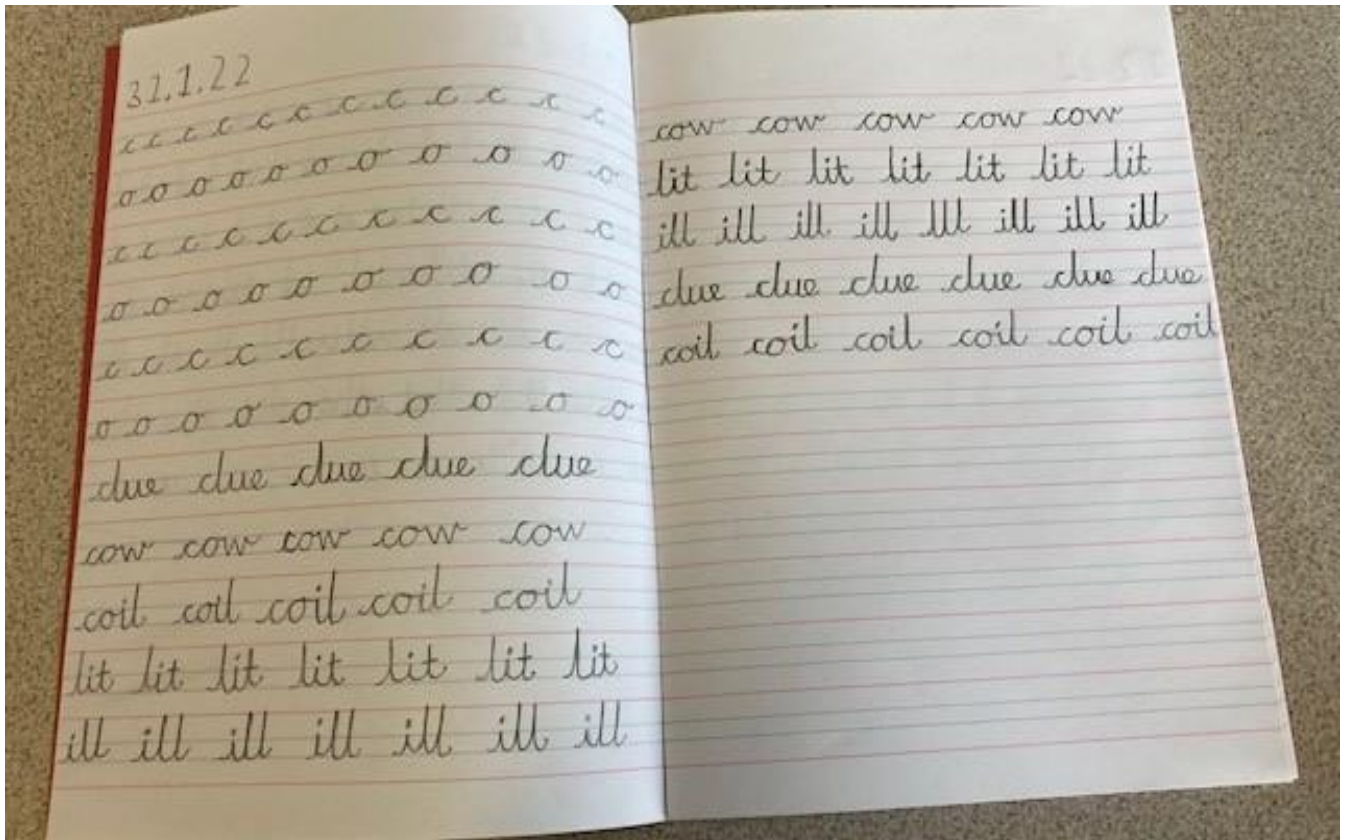 31.1.22
c c c c c c c c c c c c
o o o o o o o o o o o
c c c c c c c c c c c
o o o o o o o o o o
c c c c c c c c c c
o o o o o o o o o o
clue clue clue clue clue
cow cow cow cow cow
coil coil coil coil coil
lit lit lit lit lit lit lit
ill ill ill ill ill ill ill
cow cow cow cow cow
lit lit lit lit lit lit lit
ill ill ill ill lll ill ill ill
clue clue clue clue clue clue
coil coil coil coil coil coil